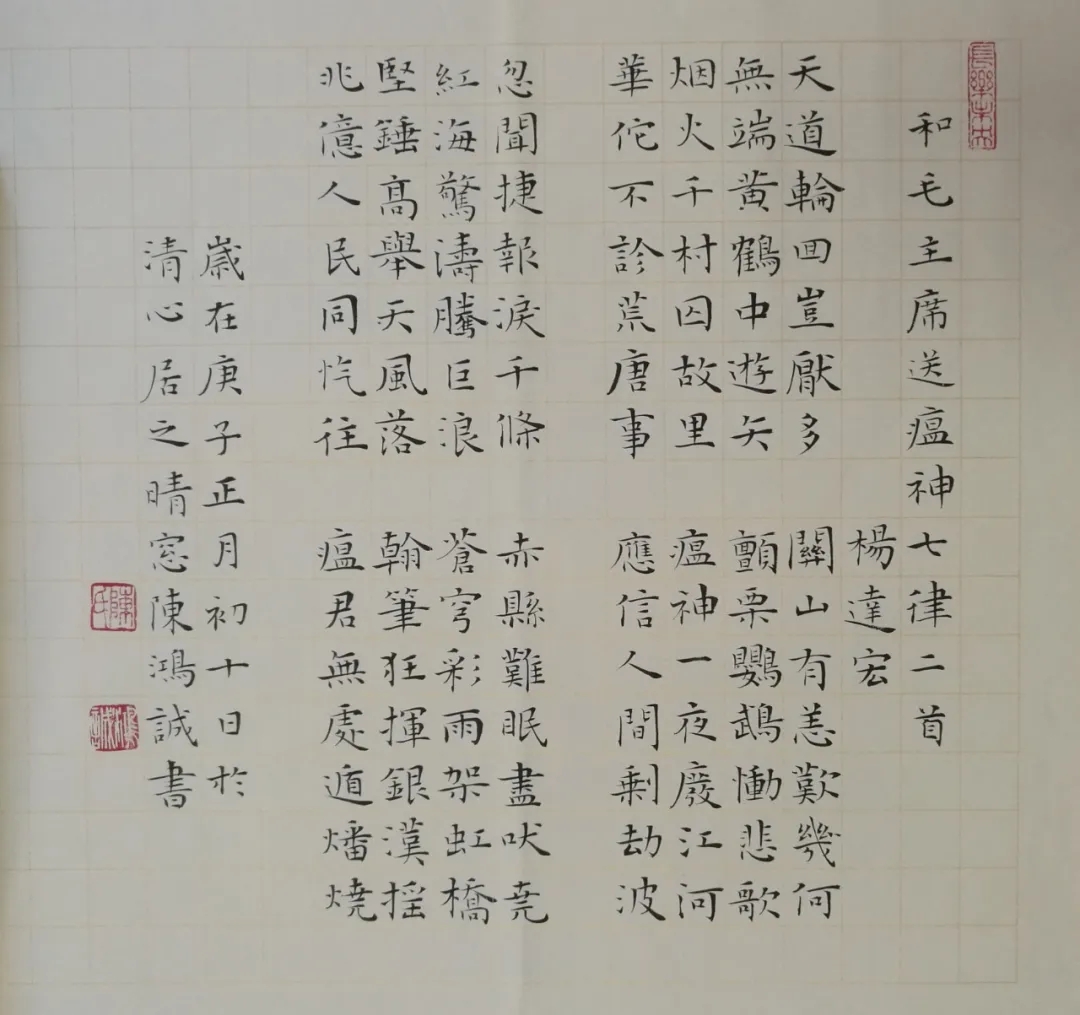 長樂未央
和毛主席送瘟神七律二首
楊達宏
天道輪囬豈厭多 關山有恙歎幾何
無端黄鶴中遊矢 顫栗鸚鵡慟悲歌
烟火千村囚故里 瘟神一夜廢江河
華佗不診荒唐事 應信人間剩劫波
忽聞捷報淚千條 赤縣難眠盡吠尭
紅海驚濤騰巨浪 蒼穹彩雨架虹橋
堅錘高舉天風落 翰筆狂揮銀漢摇
兆億人民同忾往 瘟君無處遁燔燒
歲在庚子正月初十日於
清心居之晴窓陳鴻誠書
陳氏
鴻誠